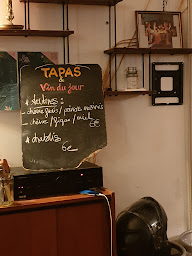 TAPAS
&
Vin du jour
tartines :
- chèvre frais / poivrons marinés
- chèvre / figue / miel
6€
chablis
6€